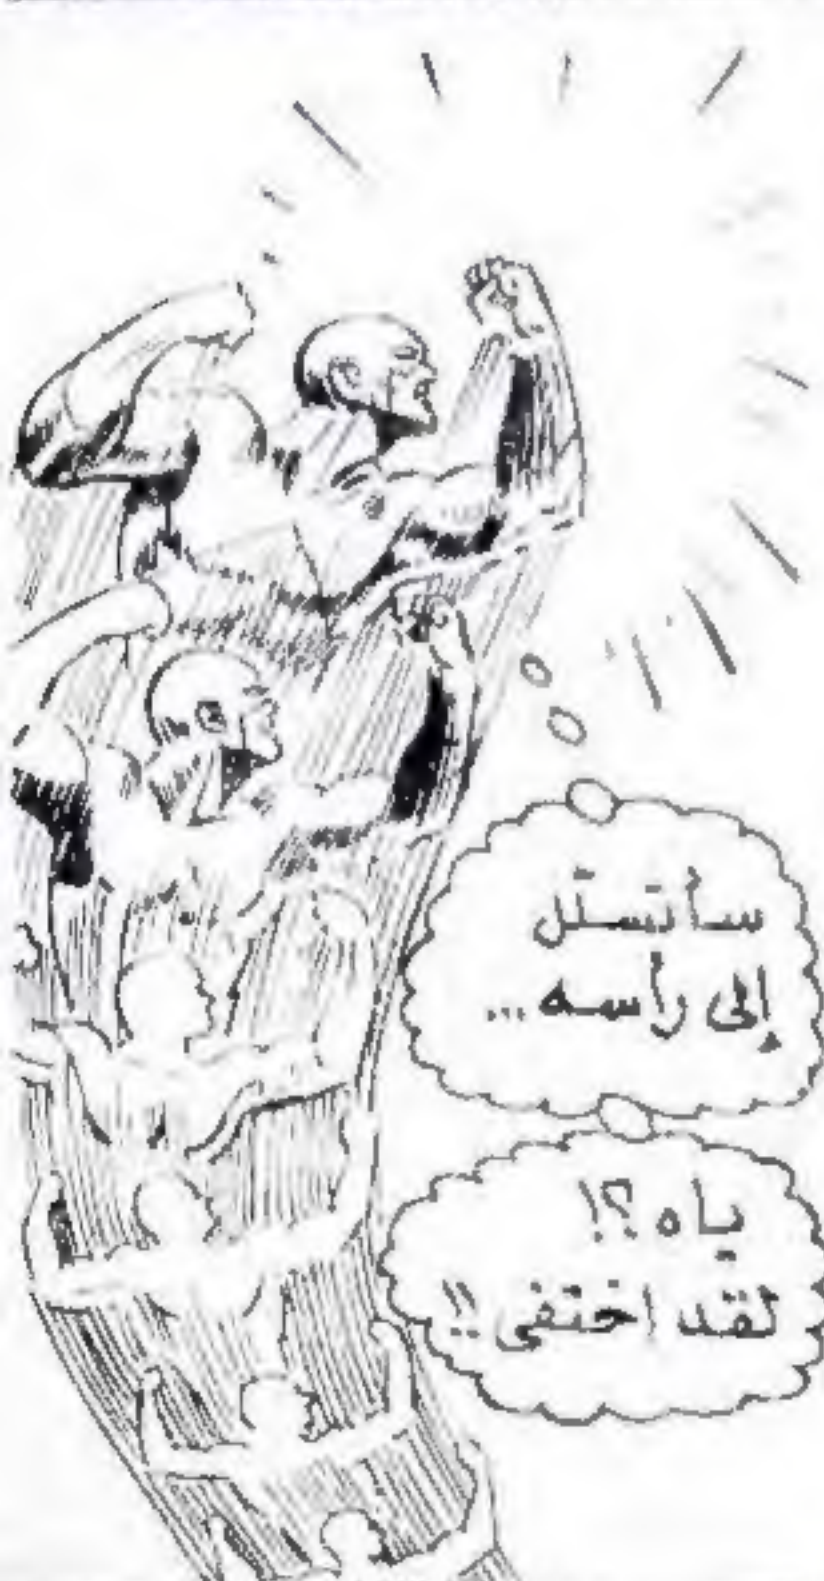 سأتسلل
إلى رأسه...
ياه ؟!
لقد اختفى !!